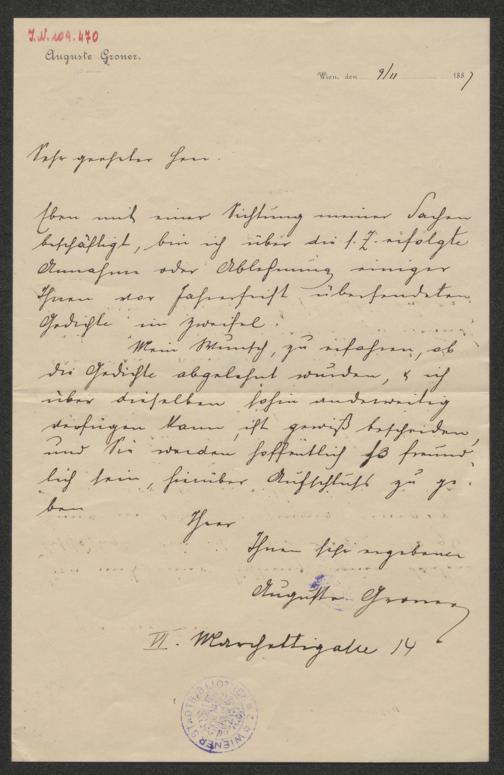 J.N. 109.470
Auguste Groner.
Wien, den 9/11 1887
Sehr geehrter Herr.
Eben mit einer Sichtung meiner Sachen
beschäftigt, bin ich über die s. Z. erfolgte
Annahme oder Ablehnung einiger
Ihnen vor Jahresfrist übersendeten
Gedichte in Zweifel.
Mein Wunsch, zu erfahren, ob
die Gedichte abgelehnt wurden, & ich
über dieselben sohin anderweitig
verfügen kann, ist gewiß bescheiden,
und Sie werden hoffentlich so freund
lich sein, hierüber Aufschluss zu ge-
ben
Ihnen sehr ergebene
Auguste Groner
VI. Marchettigasse 14
WIENER STADTBIBLIOTHEK